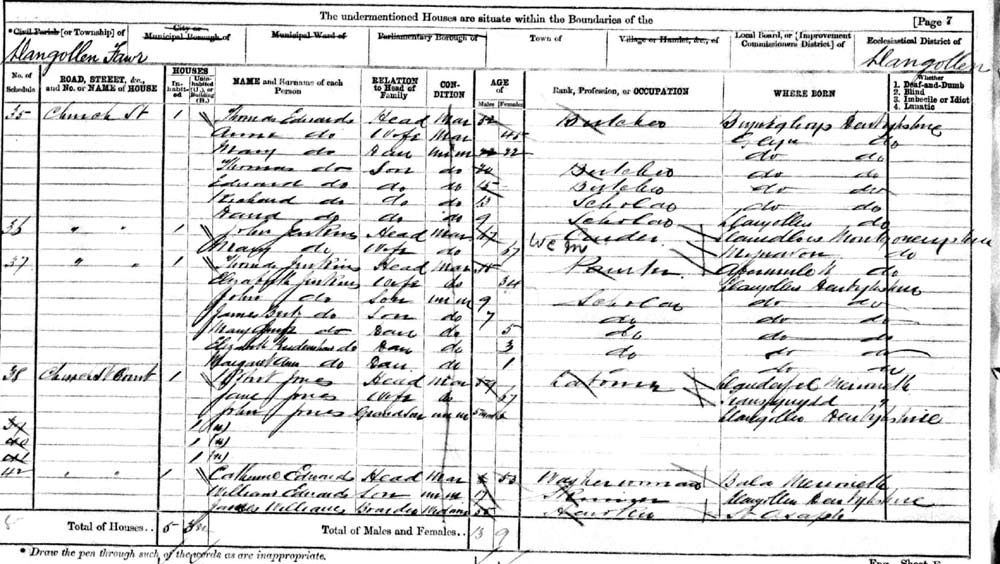 The undermentioned Houses are situate within the Boundaries of the [Page 7
*Civil Parish [or Township] of City or Municipal Borough of Municipal Ward of Parliamentary Borough of Town of Village or Hamlet, &c., of Local Board, or [Improvement Commissioners District] of Ecclesiastical District of
Llangollen Fawr Llangollen
No. of Schedule ROAD, STREET, &c., and No. or NAME of HOUSE HOUSES Inhabited Uninhabited (U.), or Building (B.) NAME and Surname of each Person RELATION to Head of Family CONDITION AGE Males Females Rank, Profession, or OCCUPATION WHERE BORN Whether 1. Deaf-and-Dumb 2. Blind 3. Imbecile or Idiot 4. Lunatic
35 Church St 1 Thomas Edwards Head Mar 52 Butcher Denbighshire
Anne do Wife Mar 45 Glyn do
Mary do Dau unm 22 do do
Thomas do Son do 20 Butcher do do
Edward do do do 15 Butcher do do
Richard do do do 13 Scholar do do
David do do do 9 Scholar Llangollen do
36 " " 1 John Jenkins Head Mar 67 Llanidloes Montgomeryshire
Mary do Wife do 67 do
37 " " 1 Thomas Jenkins Head Mar Abermule do
Elizabeth Jenkins Wife do 34 Llangollen Denbighshire
John do Son unm 9 Scholar do do
James do Son do 7 do do do
Mary do Dau do 5 do do do
Elizabeth do Dau do 3 do do do
Margaret Ann do Dau do 1 do do
38 Church St Court 1 Jones Head Mar Labourer Llandderfel Merioneth
Jane Jones Wife do 67 Trawsfynydd "
John Jones Grandson unm Llangollen Denbighshire
1 (u)
1 (u)
1 (u)
42 " " 1 Catherine Edwards Head Mar 53 Washerwoman Bala Merioneth
William Edwards Son unm 17 Llangollen Denbighshire
James Williams Boarder St Asaph
Total of Houses.. 5 3u Total of Males and Females.. 13 9
* Draw the pen through such of the words as are inappropriate.